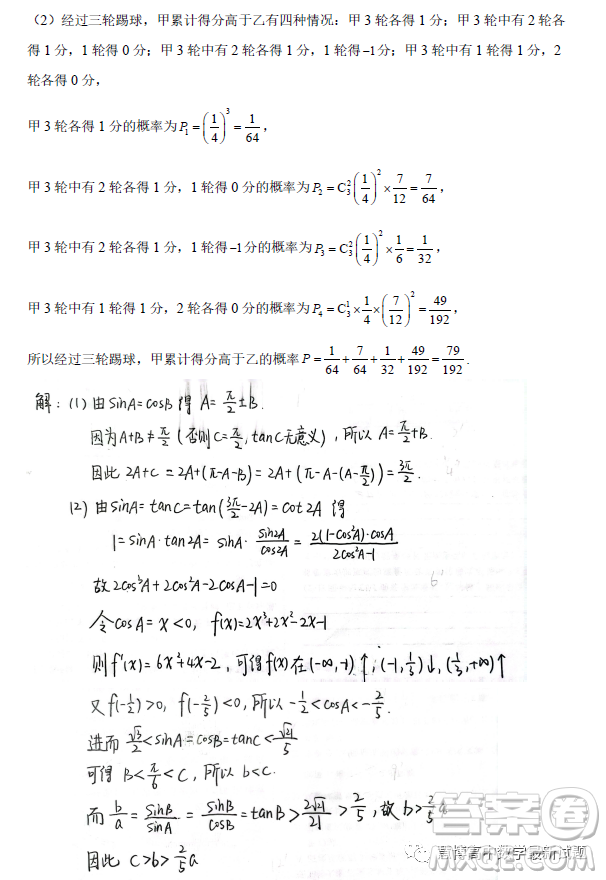 （2）经过三轮踢球，甲累计得分高于乙有四种情况：甲 3 轮各得 1 分；甲 3 轮中有 2 轮各
得 1 分，1 轮得 0 分；甲 3 轮中有 2 轮各得 1 分，1 轮得 −1 分；甲 3 轮中有 1 轮得 1 分，2
轮各得 0 分，
甲 3 轮各得 1 分的概率为 P₁ = (1/4)³ = 1/64，
甲 3 轮中有 2 轮各得 1 分，1 轮得 0 分的概率为 P₂ = C₃²(1/4)² × 7/12 = 7/64，
甲 3 轮中有 2 轮各得 1 分，1 轮得 −1 分的概率为 P₃ = C₃²(1/4)² × 1/6 = 1/32，
甲 3 轮中有 1 轮得 1 分，2 轮各得 0 分的概率为 P₄ = C₃¹ × 1/4 × (7/12)² = 49/192，
所以经过三轮踢球，甲累计得分高于乙的概率 P = 1/64 + 7/64 + 1/32 + 49/192 = 79/192.
解：(1) 由 sinA=cosB 得 A=π/2±B.
因为 A+B≠π/2 (否则C=π/2, tanC无意义)，所以 A=π/2+B.
因此 2A+C = 2A+(π-A-B) = 2A+(π-A-(A-π/2)) = 3π/2.
(2) 由 sinA=tanC=tan(3π/2-2A)=cot2A 得
1=sinA·tan2A = sinA·sin2A/cos2A = 2(1-cos²A)·cosA/2cos²A-1
故 2cos³A+2cos²A-2cosA-1=0
令 cosA=x<0， f(x)=2x³+2x²-2x-1
则 f'(x)=6x²+4x-2，可得 f(x) 在 (-∞,-1)↑，(-1,1/3)↓，(1/3,+∞)↑
又 f(-1/2)>0，f(-2/5)<0，所以 -1/2<cosA<-2/5.
进而 √3/2<sinA=cosB=tanC<√21/5
可得 B<π/6<C，所以 b<c.
而 b/a = sinB/sinA = sinB/cosB = tanB > 2√21/21 > 2/5，故 b>2/5a
因此 c>b>2/5a
答案圈
MXQE.COM
慧博高中数学最新试题